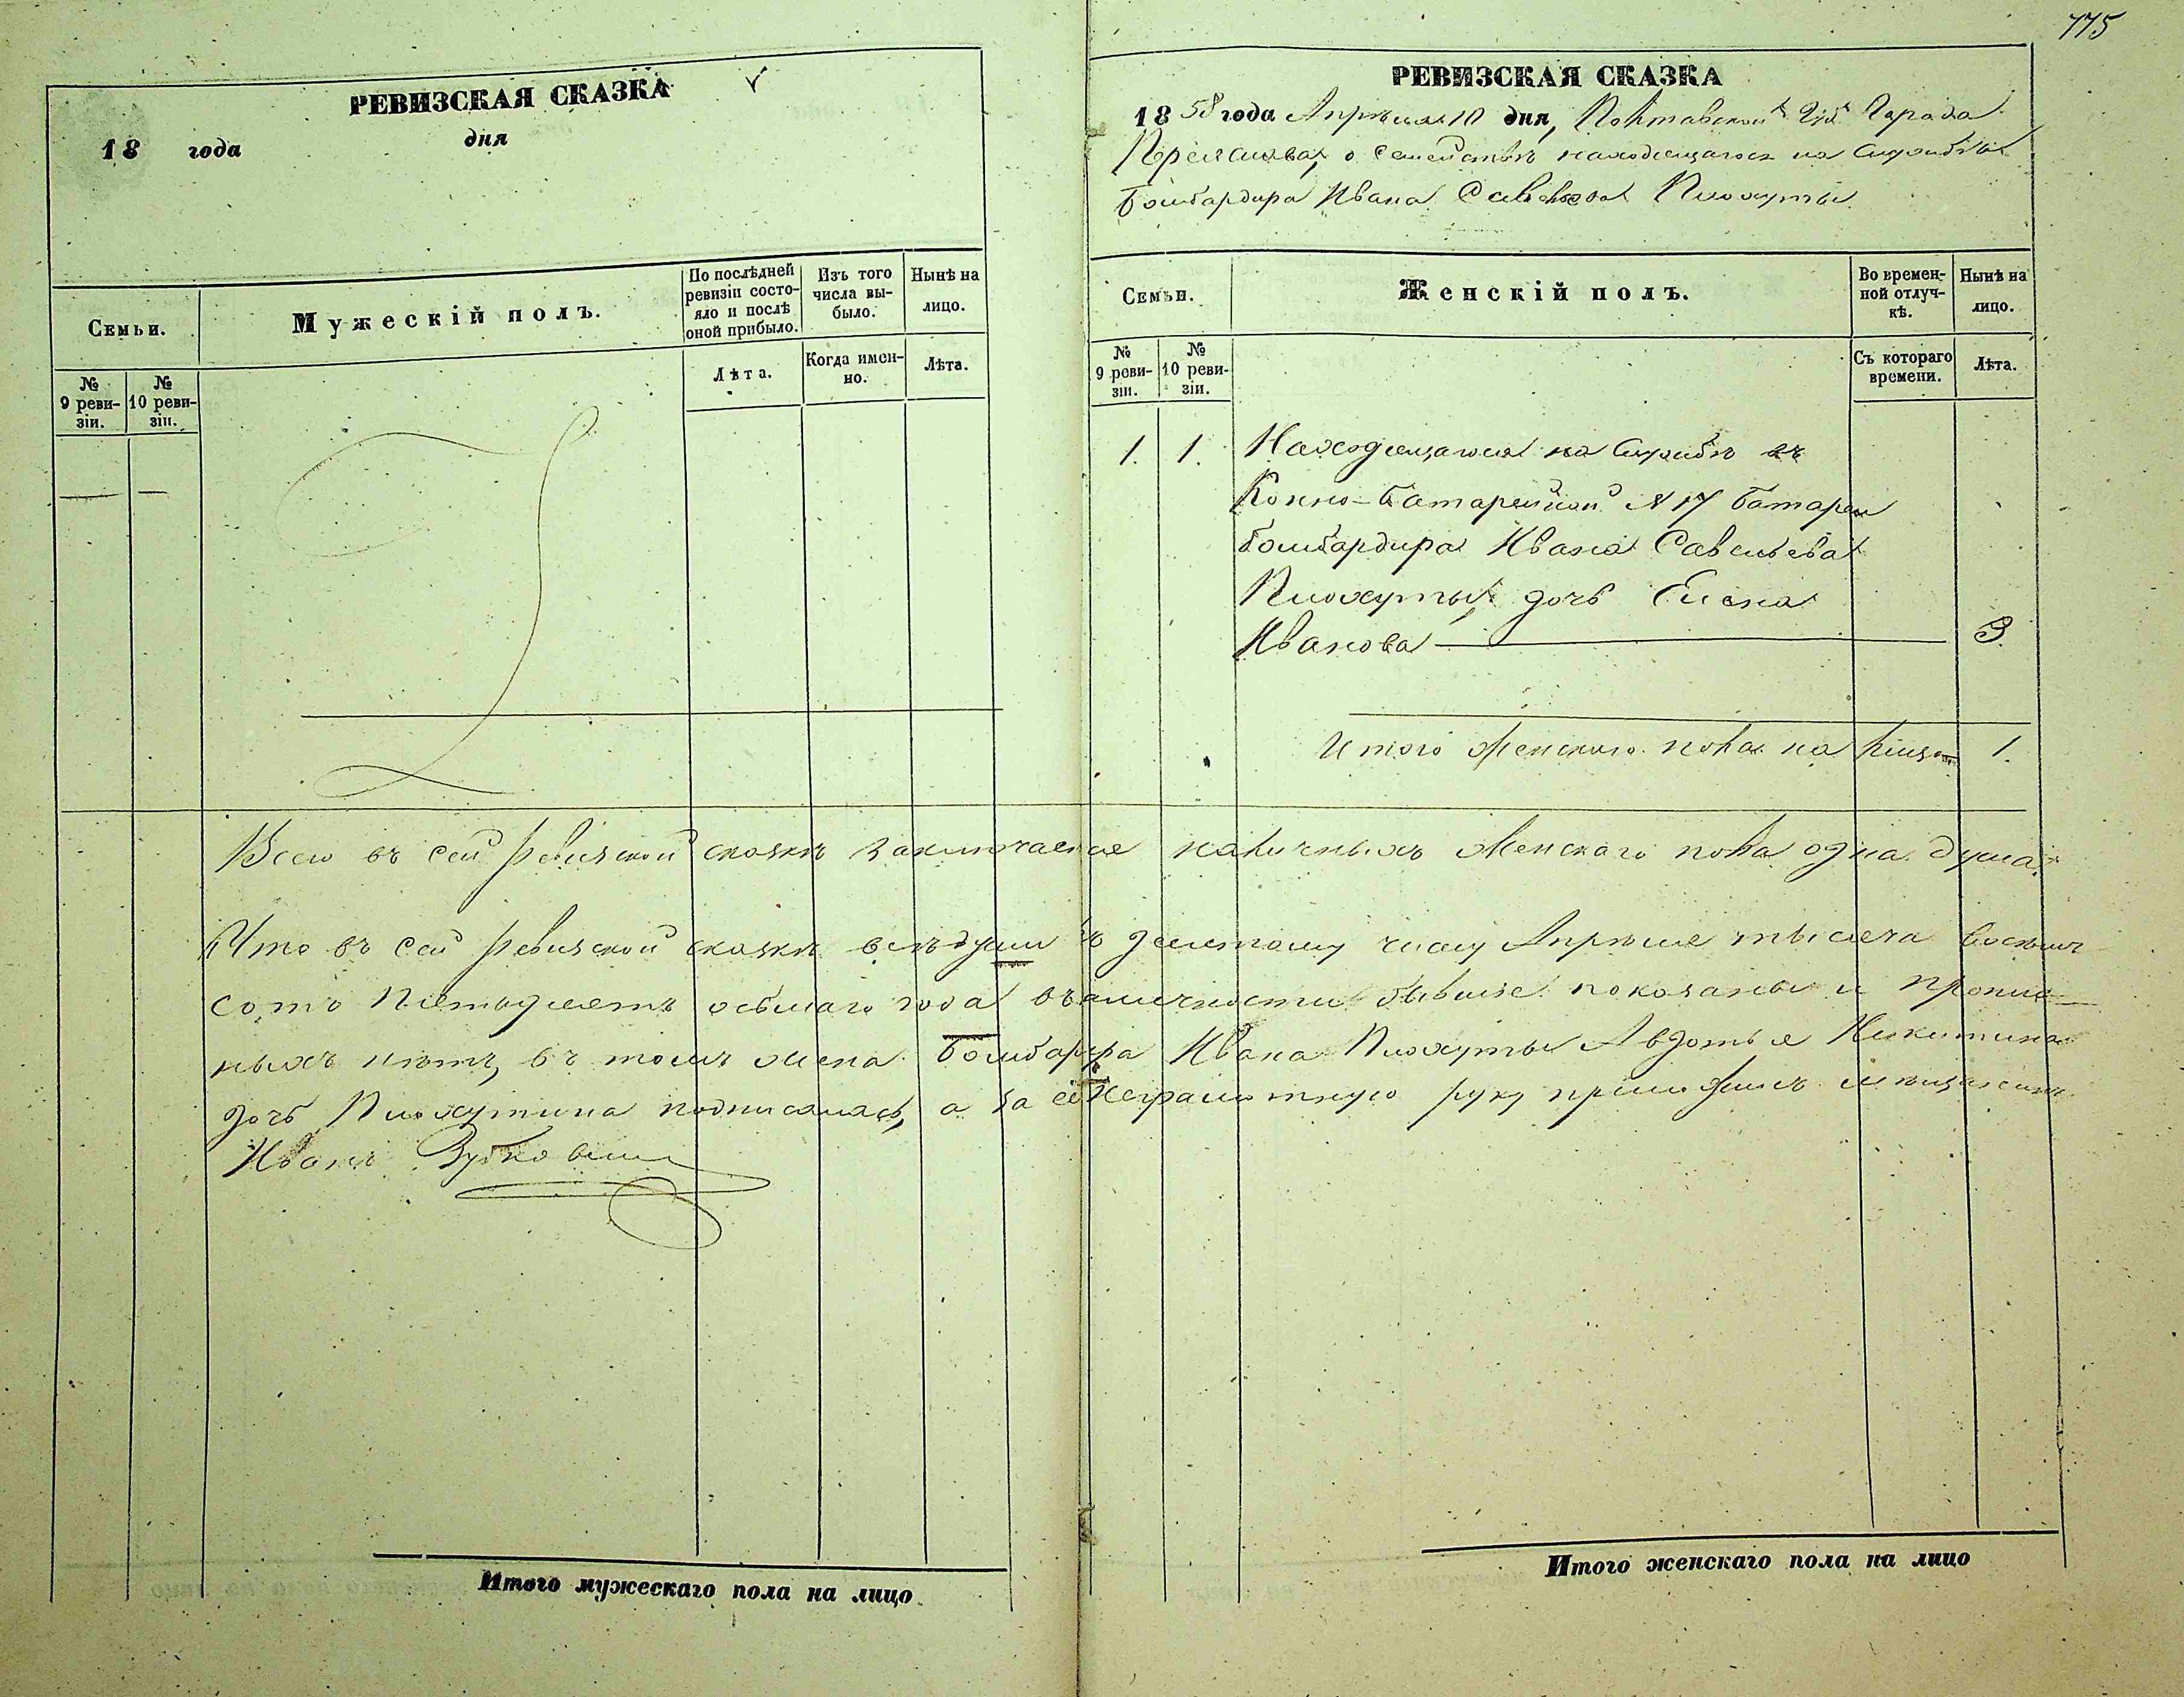 775
РЕВИЗСКАЯ СКАЗКА
18 года дня
Семьи.
Мужескій полъ.
По послѣдней ревизіи состояло и послѣ оной прибыло.
Изъ того числа выбыло.
Нынѣ на лицо.
№ 9 ревизіи.
№ 10 ревизіи.
Лѣта.
Когда именно.
Лѣта.
РЕВИЗСКАЯ СКАЗКА
1858 года Апрѣля 10 дня, Полтавской Губ. Города
Переяслава, о семействѣ находящагося на службѣ
бомбардира Ивана Савельева Плохуты
Семьи.
Женскій полъ.
Во временной отлучкѣ.
Нынѣ на лицо.
№ 9 ревизіи.
№ 10 ревизіи.
Съ котораго времени.
Лѣта.
1. 1. Находящагося на службѣ въ
Конно-батарейной № 17 батареи
бомбардира Ивана Савельева
Плохуты, дочь Елена
Иванова 3.
Итого женскаго пола на лицо 1.
Всего въ сей ревизской сказкѣ заключается наличныхъ женскаго пола одна душа.
Что въ сей ревизской сказкѣ всѣ души къ десятому числу Апрѣля тысяча восемь
сотъ пятьдесятъ осьмаго года въ наличности бывшіе показаны и пропис
ныхъ нѣтъ, въ томъ жена бомбардира Ивана Плохуты Авдотья Никитина
дочь Плохутина подписалась, а за её неграмотную руку приложилъ мѣщанинъ
Иванъ
Итого мужескаго пола на лицо
Итого женскаго пола на лицо